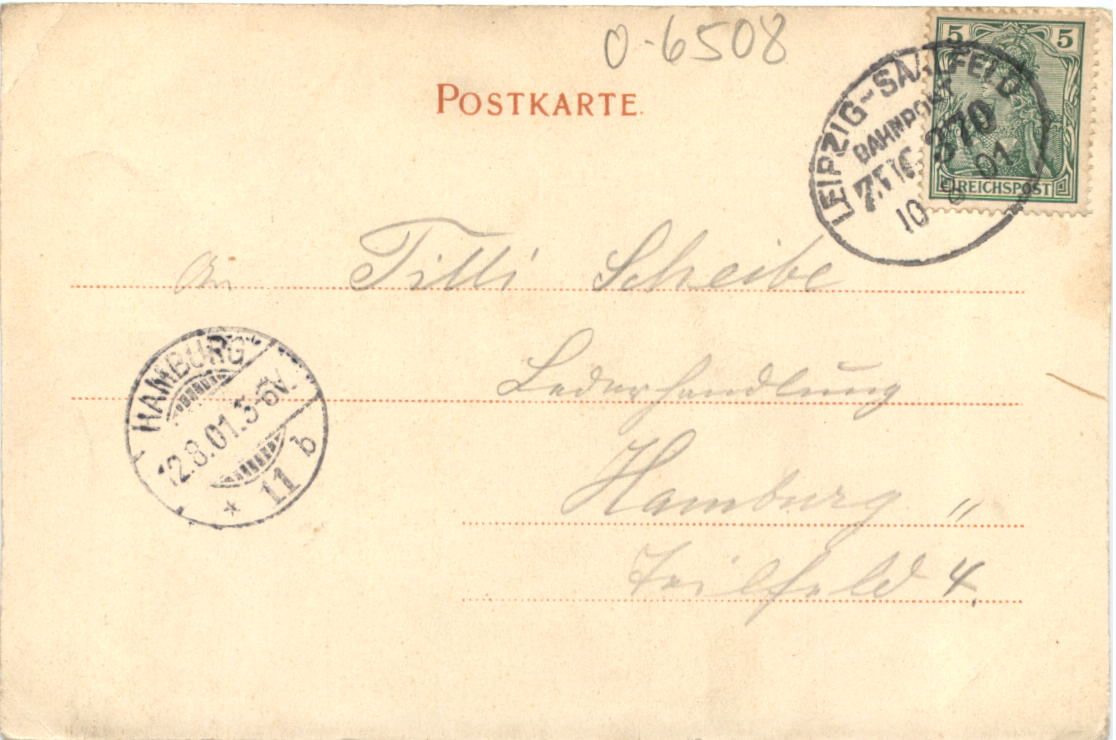 O-6508
POSTKARTE.
5 5
REICHSPOST
LEIPZIG-SAALFELD
BAHNPOST
ZUG 370
10 8 01
An Tilli Scheibe
Lederhandlung
Hamburg "
4
HAMBURG
12.8.01.5-6V.
* 11 b